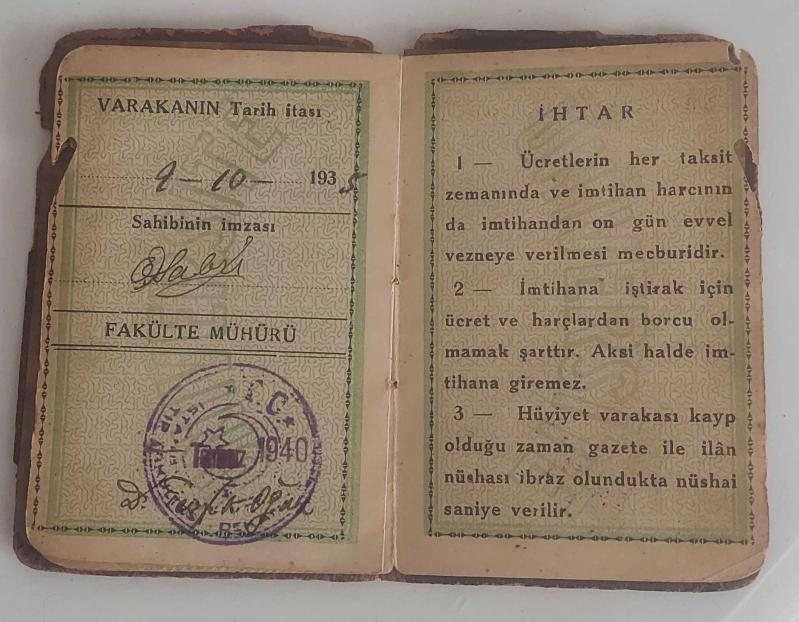 VARAKANIN Tarih itası
9 - 10 - 1935
Sahibinin imzası
FAKÜLTE MÜHÜRÜ
T.C.
Temmuz 1940
İHTAR
1 — Ücretlerin her taksit
zemanında ve imtihan harcının
da imtihandan on gün evvel
vezneye verilmesi mecburidir.
2 — İmtihana iştirak için
ücret ve harçlardan borcu ol-
mamak şarttır. Aksi halde im-
tihana giremez.
3 — Hüviyet varakası kayp
olduğu zaman gazete ile ilân
nüshası ibraz olundukta nüshai
saniye verilir.